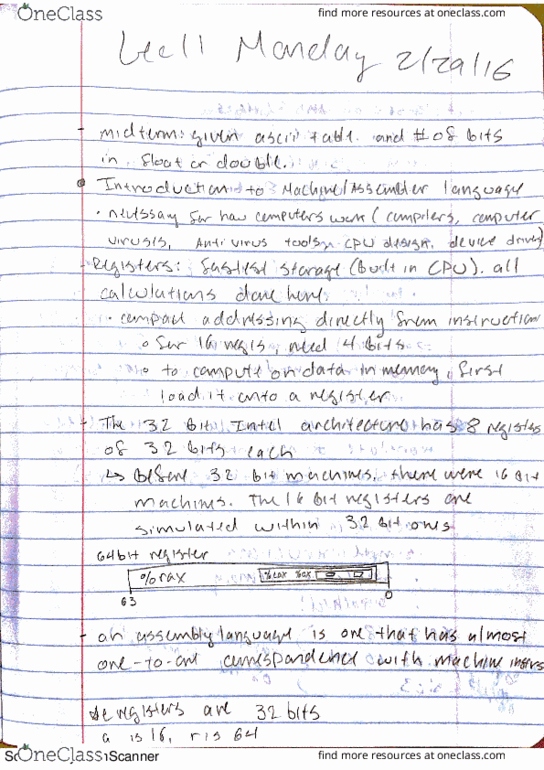 OneClass
find more resources at oneclass.com
Lec 11 Monday 2/29/16
- midterm: given ascii table. and # of bits
in float or double.
Introduction to Machine/Assembler language
• necessary for how computers work (compilers, computer
virusis, Anti virus tools, CPU design, device driver)
- Registers: fastest storage (built in CPU). all
calculations done here
• compact addressing directly from instruction
o for 16 regis, need 4 bits
o to compute on data in memory, first
load it onto a register
- The 32 bit Intel architecture has 8 registers
of 32 bits each
↳ before 32 bit machines, there were 16 bit
machines. The 16 bit registers are
simulated within 32 bit ones
64 bit register
%rax %eax %ax
63 0
- an assembly language is one that has almost
one-to-one correspondence with machine instrs
e registers are 32 bits
a is 16, r is 64
OneClass
Scanner
find more resources at oneclass.com